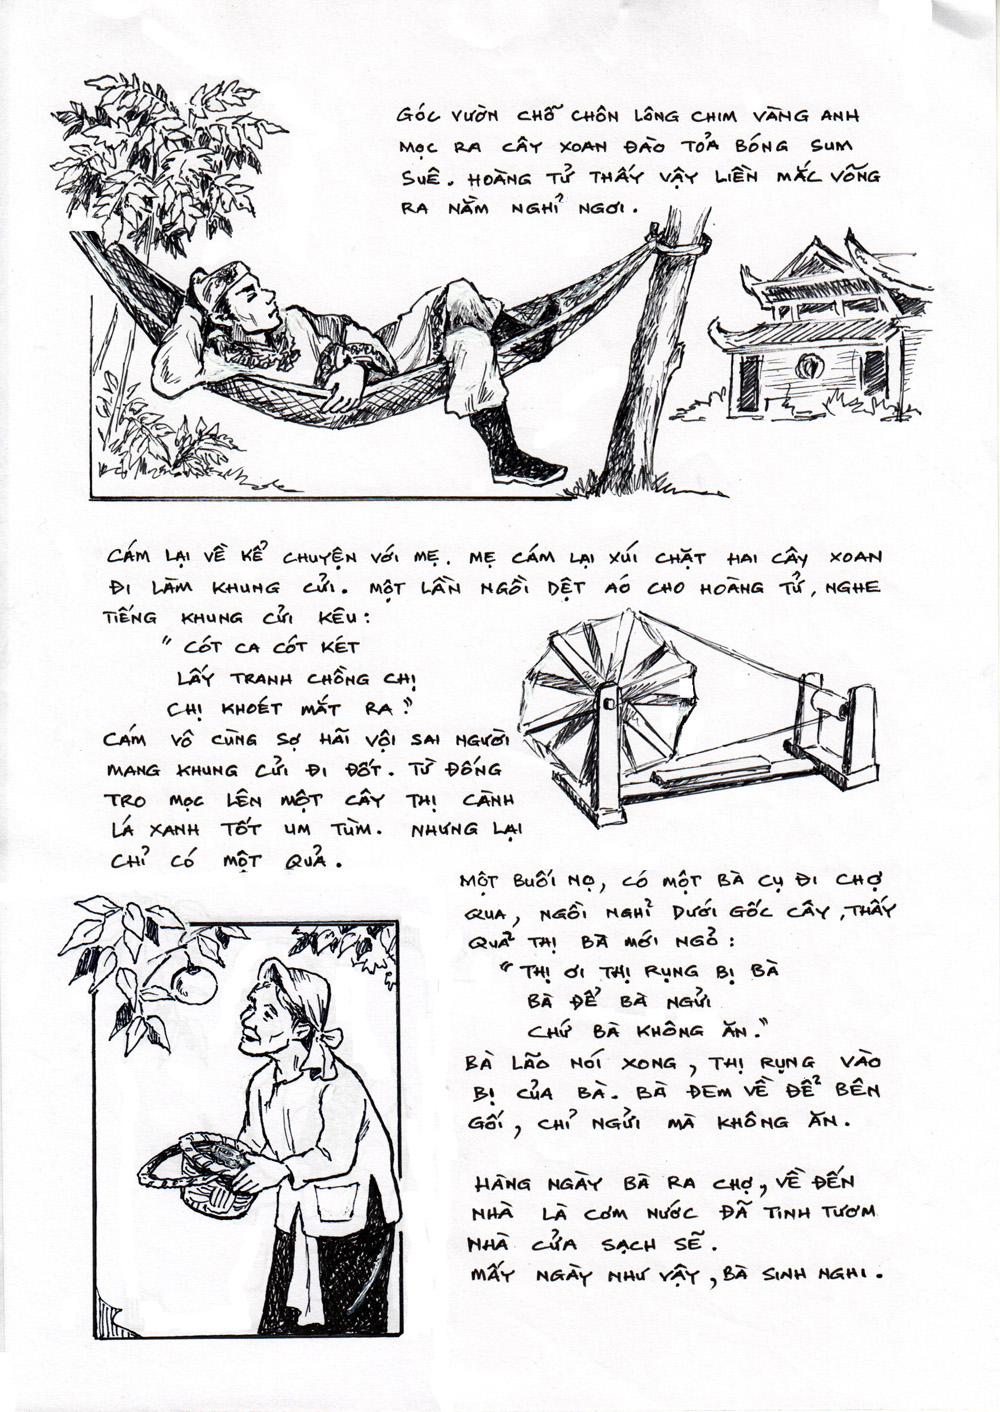 GÓC VƯỜN CHỖ CHÔN LÔNG CHIM VÀNG ANH
MỌC RA CÂY XOAN ĐÀO TỎA BÓNG SUM
SUÊ. HOÀNG TỬ THẤY VẬY LIỀN MẮC VÕNG
RA NẰM NGHỈ NGƠI.
CÁM LẠI VỀ KỂ CHUYỆN VỚI MẸ. MẸ CÁM LẠI XÚI CHẶT HAI CÂY XOAN
ĐI LÀM KHUNG CỬI. MỘT LẦN NGỒI DỆT AÓ CHO HOÀNG TỬ, NGHE
TIẾNG KHUNG CỬI KÊU:
"CÓT CA CÓT KÉT
LẤY TRANH CHỒNG CHỊ
CHỊ KHOÉT MẮT RA."
CÁM VÔ CÙNG SỢ HÃI VỘI SAI NGƯỜI
MANG KHUNG CỬI ĐI ĐỐT. TỪ ĐỐNG
TRO MỌC LÊN MỘT CÂY THỊ CÀNH
LÁ XANH TỐT UM TÙM. NHƯNG LẠI
CHỈ CÓ MỘT QUẢ.
MỘT BUỔI NỌ, CÓ MỘT BÀ CỤ ĐI CHỢ
QUA, NGỒI NGHỈ DƯỚI GỐC CÂY, THẤY
QUẢ THỊ BÀ MỚI NGỎ:
"THỊ ƠI THỊ RỤNG BỊ BÀ
BÀ ĐỂ BÀ NGỬI
CHỨ BÀ KHÔNG ĂN."
BÀ LÃO NÓI XONG, THỊ RỤNG VÀO
BỊ CỦA BÀ. BÀ ĐEM VỀ ĐỂ BÊN
GỐI, CHỈ NGỬI MÀ KHÔNG ĂN.
HÀNG NGÀY BÀ RA CHỢ, VỀ ĐẾN
NHÀ LÀ CƠM NƯỚC ĐÃ TINH TƯƠM
NHÀ CỬA SẠCH SẼ.
MẤY NGÀY NHƯ VẬY, BÀ SINH NGHI.